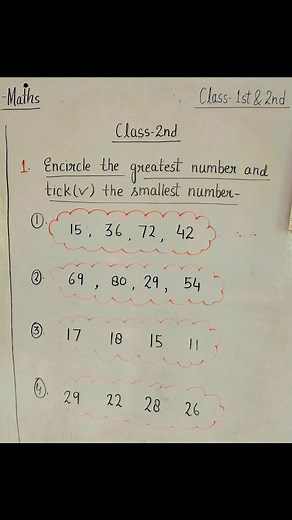 -Maths
Class-1st & 2nd
Class-2nd
1. Encircle the greatest number and
tick(v) the smallest number-
①. 15, 36, 72, 42
②. 69, 80, 29, 54
③. 17 18 15 11
④. 29 22 28 26